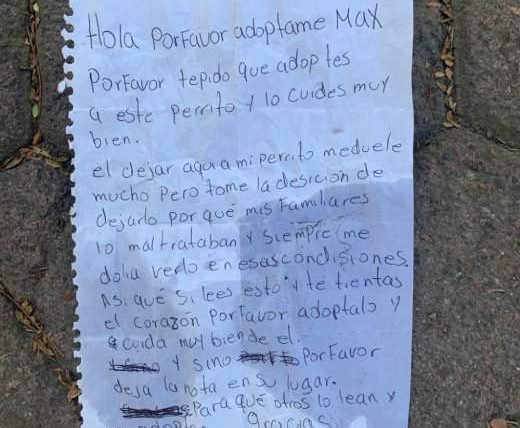 Hola Porfavor adoptame Max
Porfavor tepido que adoptes
a este perrito y lo cuides muy
bien.
el dejar aqui a mi perrito meduele
mucho Pero tome la desicion de
dejarlo por qué mis Familiares
lo maltrataban y siempre me
dolia verlo en esas condisiones.
Asi qué si lees esto y te tientas
el corazón Porfavor adoptalo y
cuida muy bien de el.
y sino Porfavor
deja la nota en su lugar.
Para qué otros lo lean y
adopten Gracias